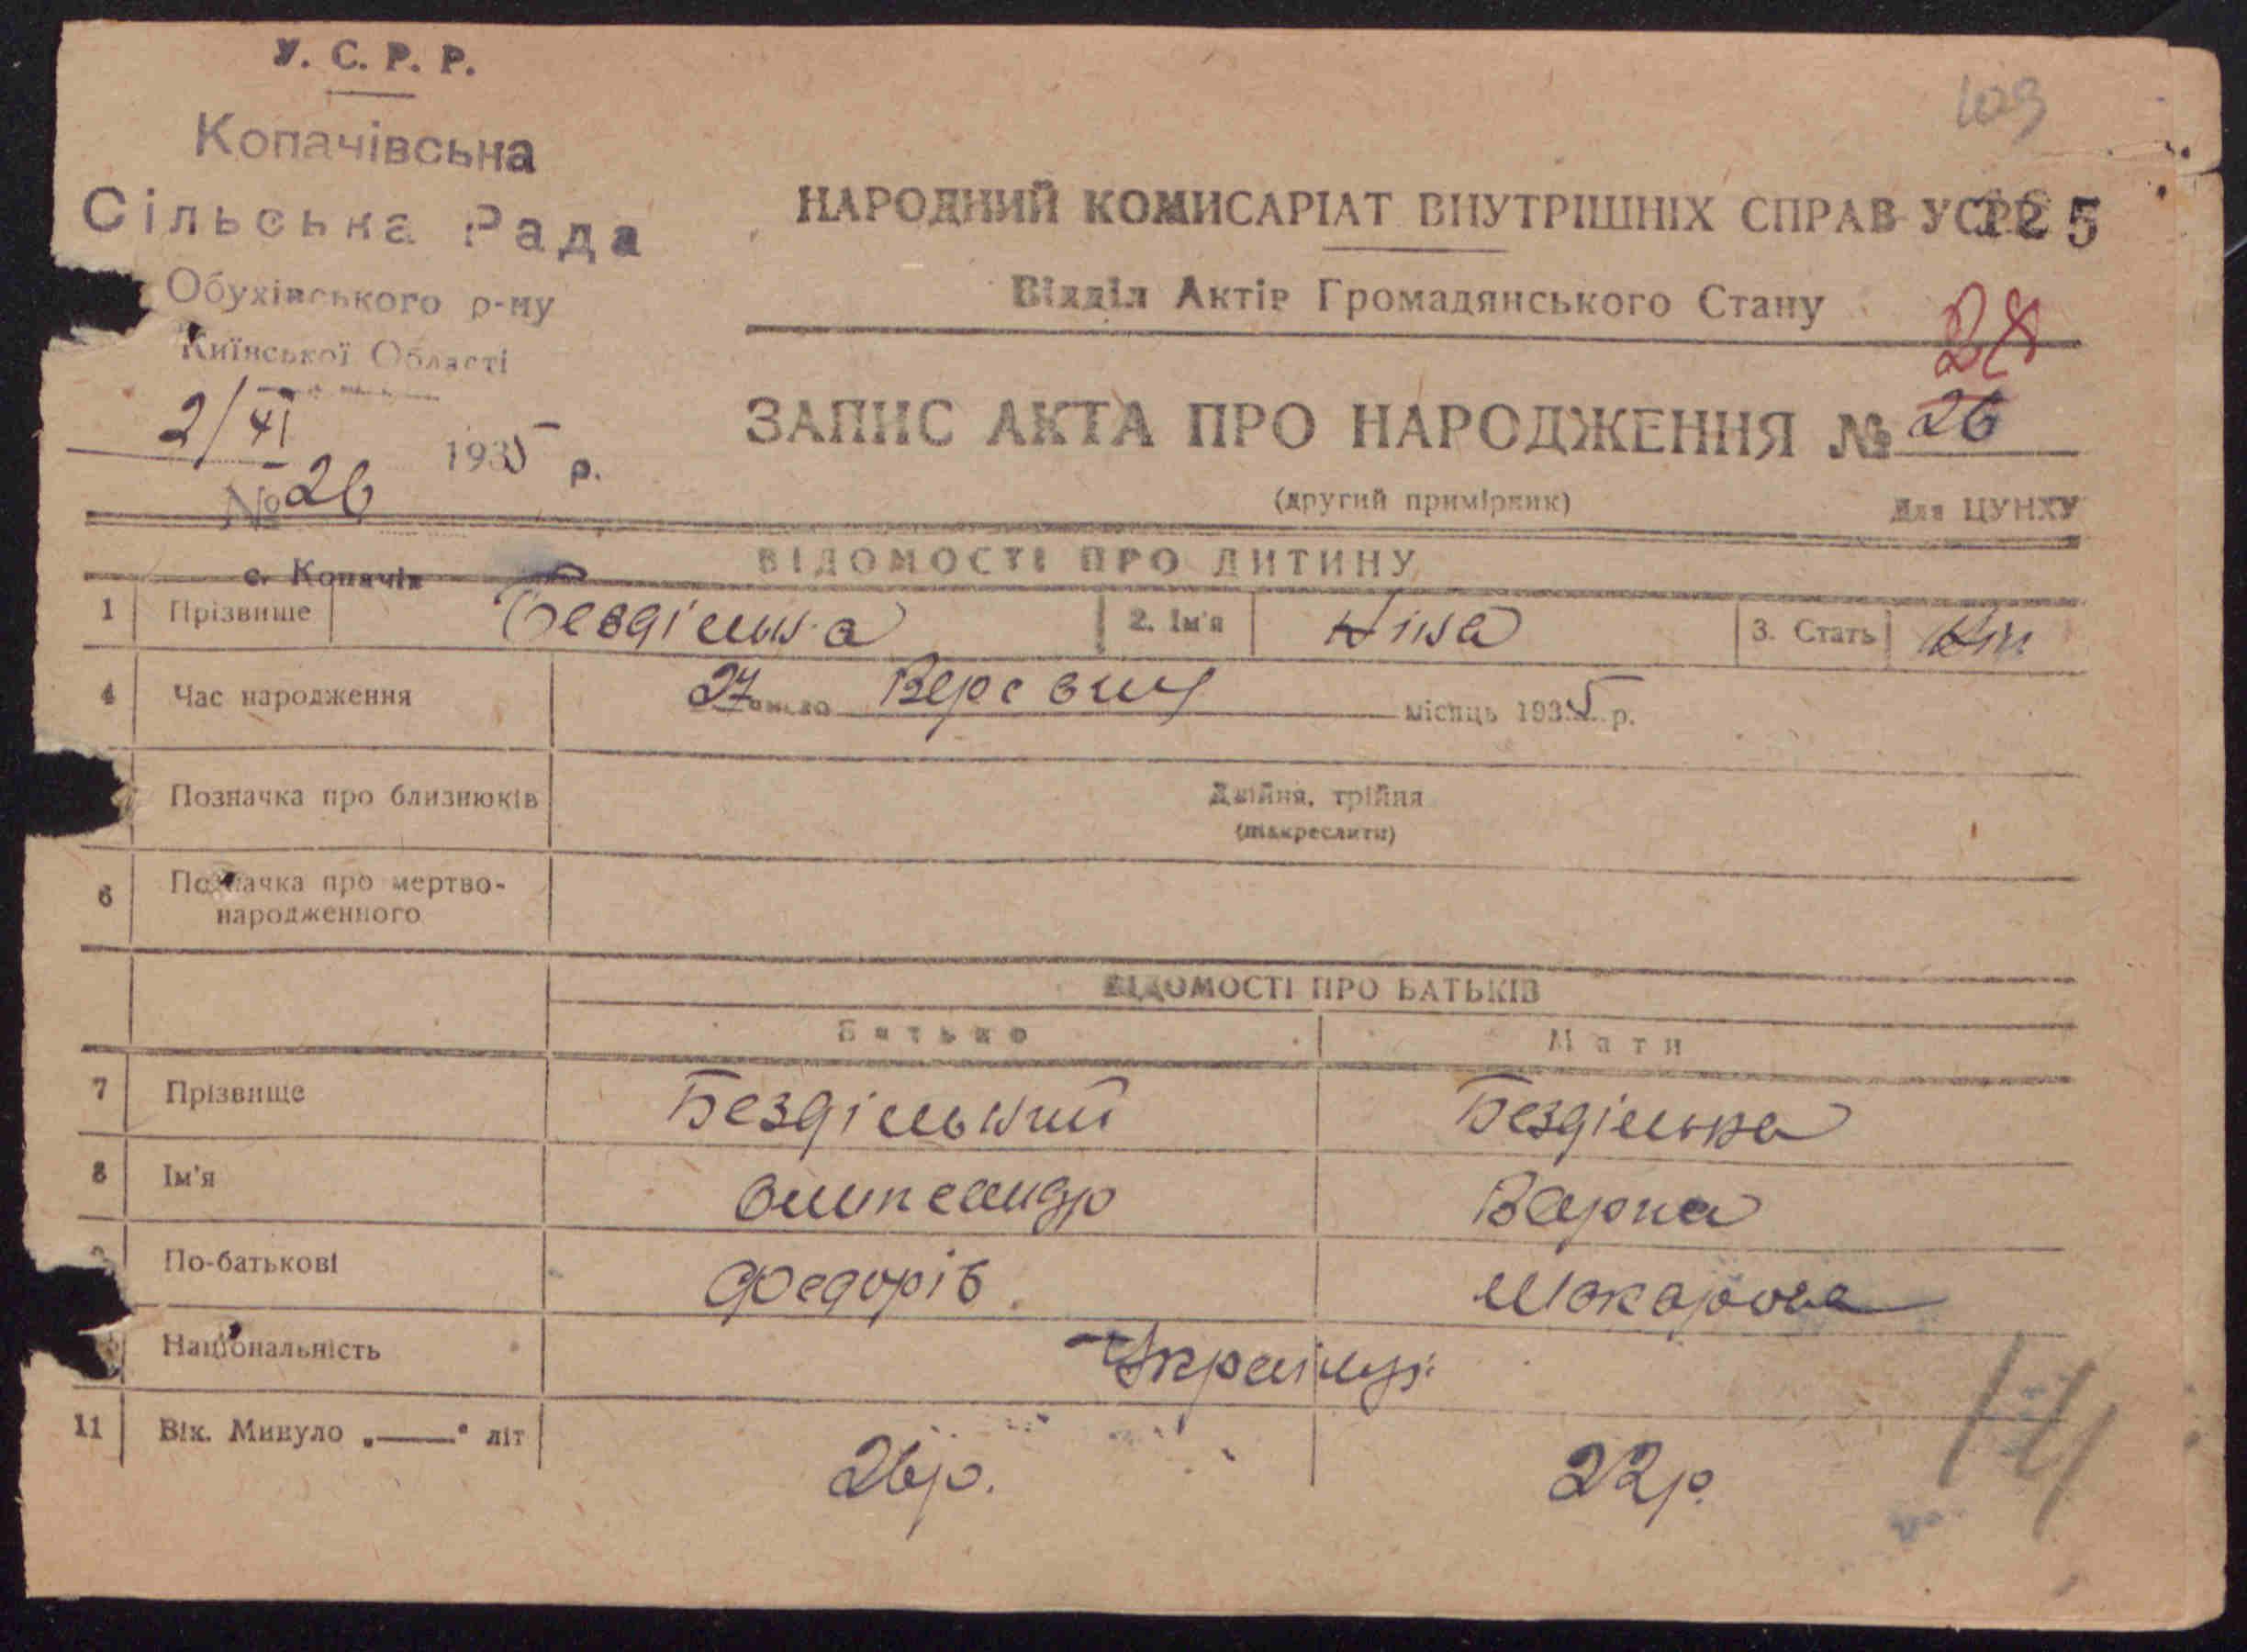 У. С. Р. Р.
Копачівська
Сільська Рада
Обухівського р-ну
Київської Області
2/VI 1935 р.
№ 26
с. Копачів
109
НАРОДНИЙ КОМИСАРІАТ ВНУТРІШНІХ СПРАВ УСРР
125
Відділ Актів Громадянського Стану
28
ЗАПИС АКТА ПРО НАРОДЖЕННЯ № 26
(другий примірник) Для ЦУНХУ
ВІДОМОСТІ ПРО ДИТИНУ
1 Прізвище Бездільна 2. Ім'я Ніна 3. Стать
4 Час народження 27 число місяць 1935 р.
Позначка про близнюків Двійня, трійня
(підкреслити)
6 Позначка про мертво-
народженного
ВІДОМОСТІ ПРО БАТЬКІВ
Батько Мати
7 Прізвище Бездільний Бездільна
8 Ім'я
По-батькові Федорів Макарова
Національність Українці
11 Вік. Минуло „——" літ 26 р. 22 р.